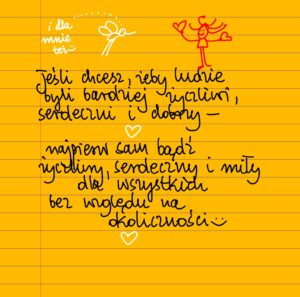 i dla
mnie
też
jeśli chcesz, żeby ludzie
byli bardziej życzliwi,
serdeczni i dobrzy –
najpierw sam bądź
życzliwy, serdeczny i miły
dla wszystkich
bez względu na
okoliczności